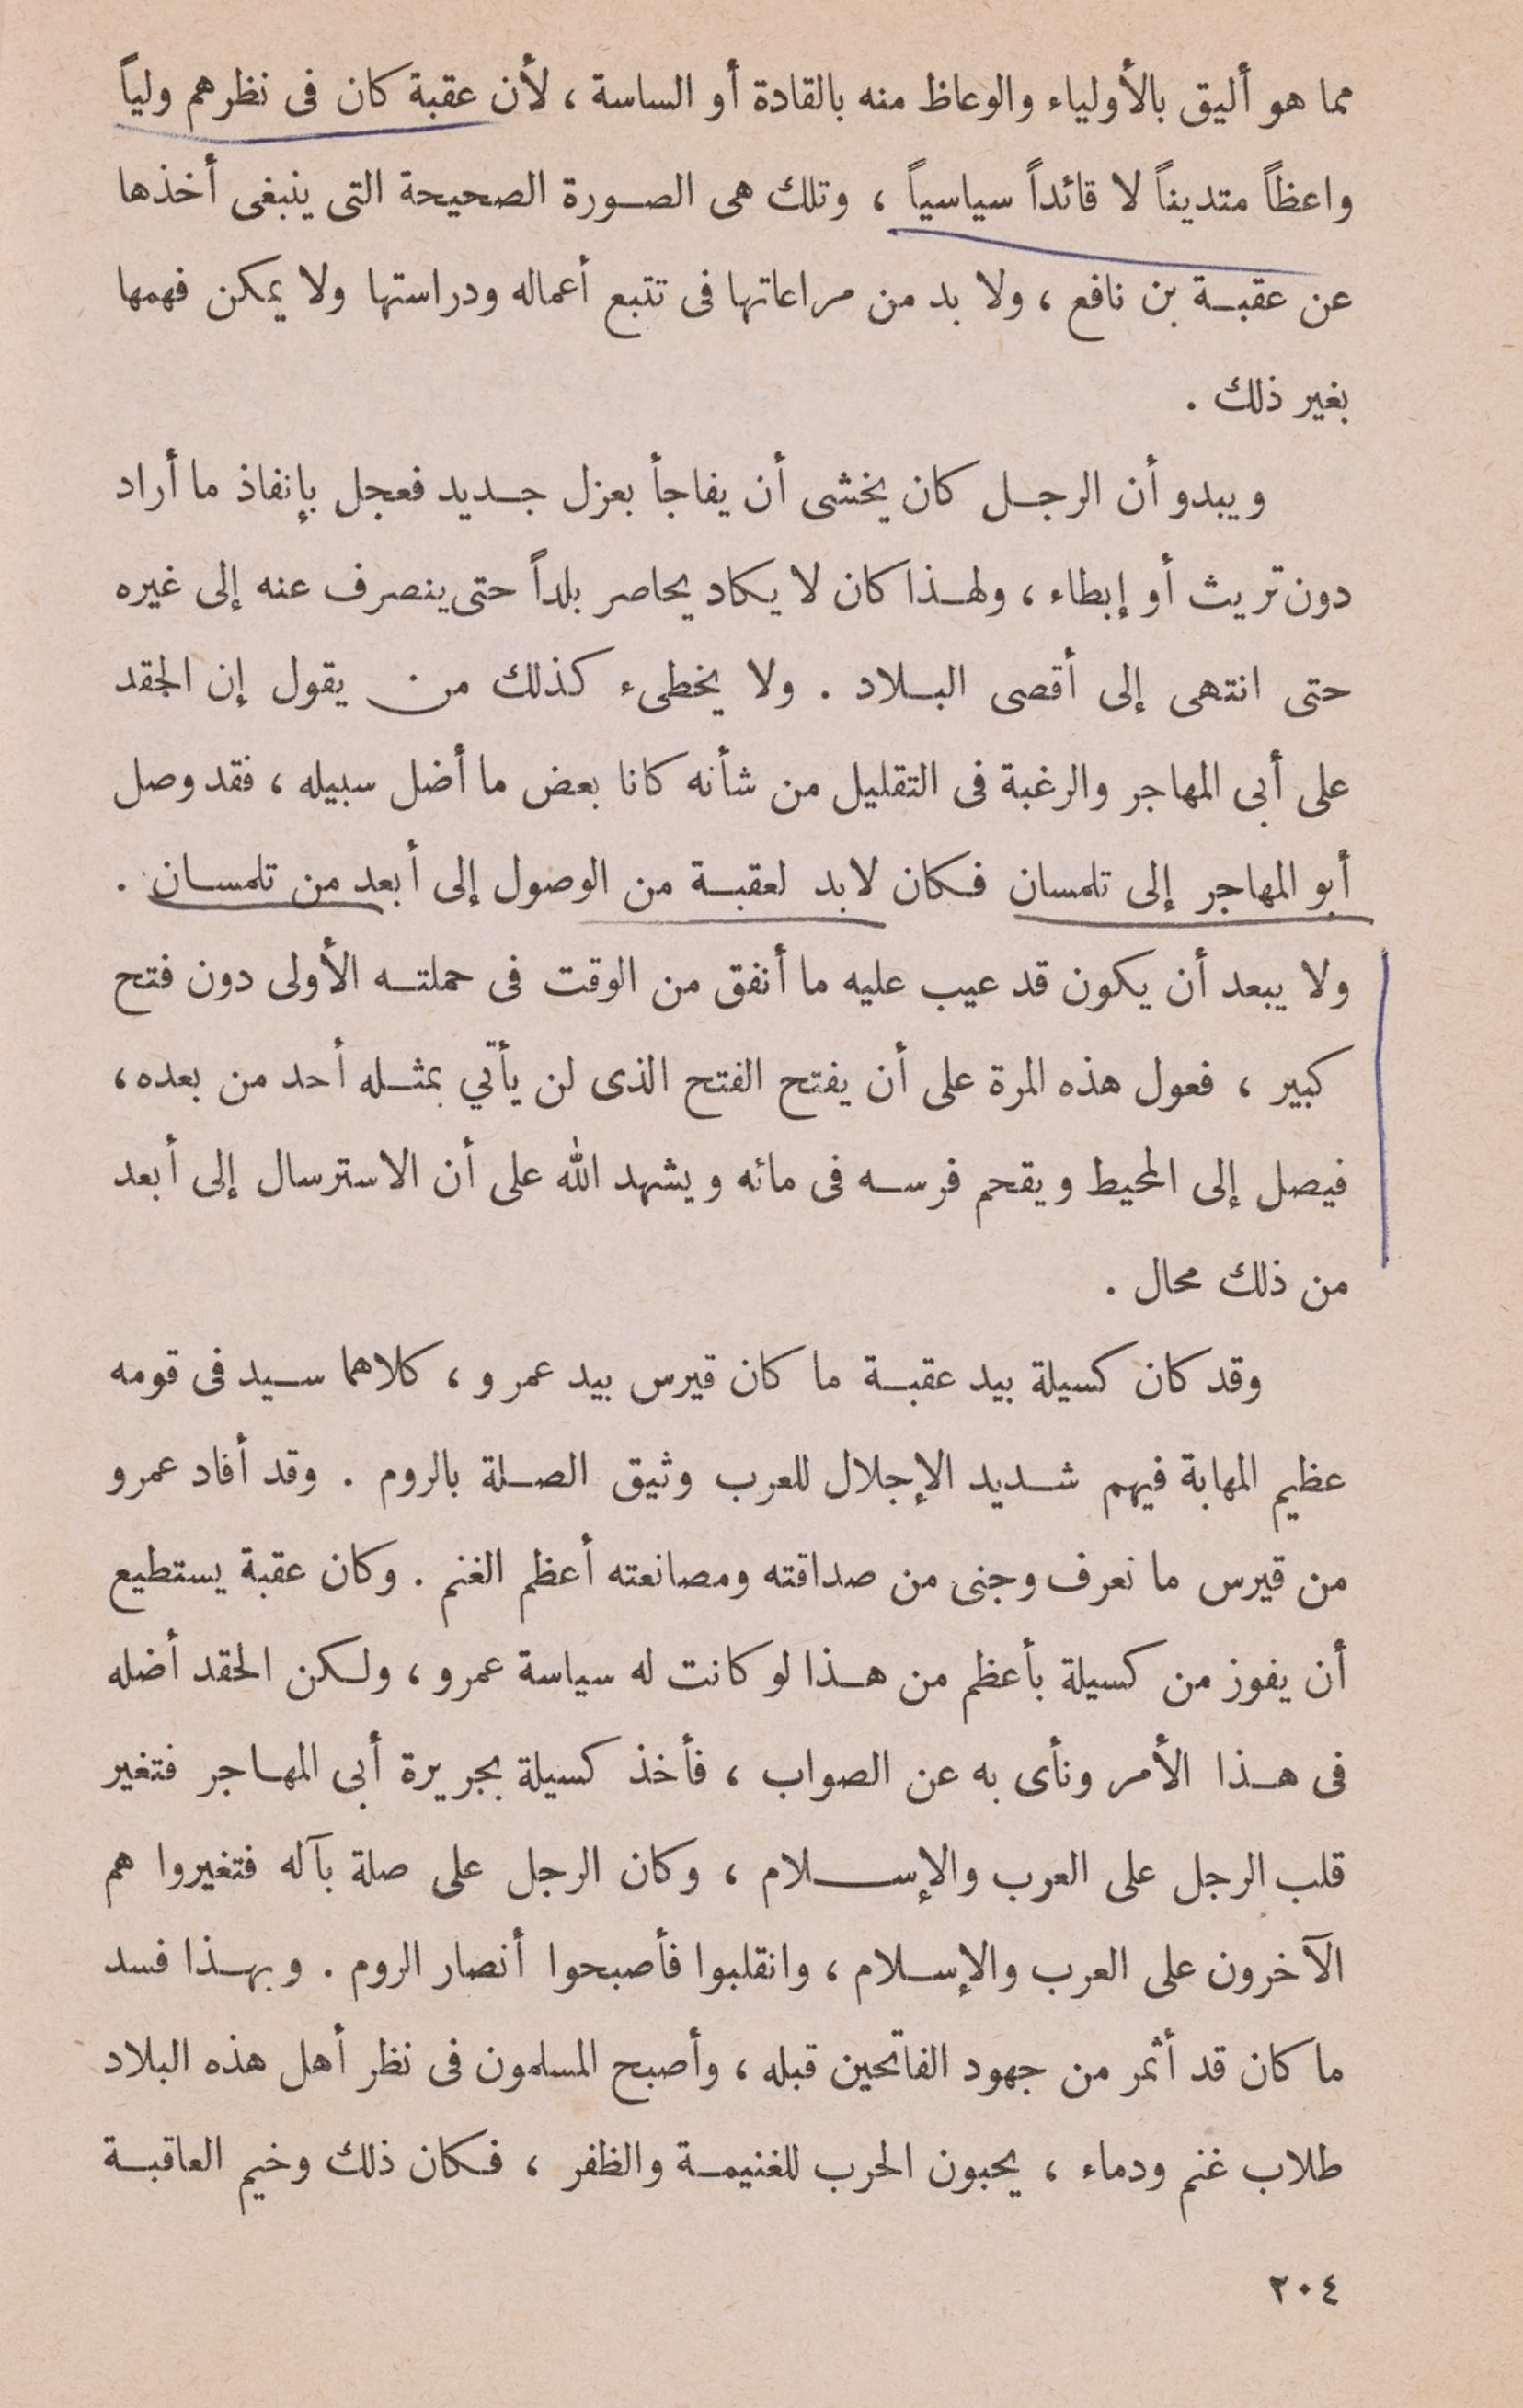 مما هو أليق بالأولياء والوعاظ منه بالقادة أو الساسة ، لأن عقبة كان فى نظرهم ولياً
واعظاً متديناً لا قائداً سياسياً ، وتلك هى الصورة الصحيحة التى ينبغى أخذها
عن عقبة بن نافع ، ولا بد من مراعاتها فى تتبع أعماله ودراستها ولا يمكن فهمها
بغير ذلك .
ويبدو أن الرجل كان يخشى أن يفاجأ بعزل جديد فعجل بإنفاذ ما أراد
دون تريث أو إبطاء ، ولهذا كان لا يكاد يحاصر بلداً حتى ينصرف عنه إلى غيره
حتى انتهى إلى أقصى البلاد . ولا يخطىء كذلك من يقول إن الحقد
على أبى المهاجر والرغبة فى التقليل من شأنه كانا بعض ما أضل سبيله ، فقد وصل
أبو المهاجر إلى تلمسان فكان لابد لعقبة من الوصول إلى أبعد من تلمسان .
ولا يبعد أن يكون قد عيب عليه ما أنفق من الوقت فى حملته الأولى دون فتح
كبير ، فعول هذه المرة على أن يفتح الفتح الذى لن يأتي بمثله أحد من بعده ،
فيصل إلى المحيط ويقحم فرسه فى مائه ويشهد الله على أن الاسترسال إلى أبعد
من ذلك محال .
وقد كان كسيلة بيد عقبة ما كان قيرس بيد عمرو ، كلاهما سيد فى قومه
عظيم المهابة فيهم شديد الإجلال للعرب وثيق الصلة بالروم . وقد أفاد عمرو
من قيرس ما نعرف وجنى من صداقته ومصانعته أعظم الغنم . وكان عقبة يستطيع
أن يفوز من كسيلة بأعظم من هذا لو كانت له سياسة عمرو ، ولكن الحقد أضله
فى هذا الأمر ونأى به عن الصواب ، فأخذ كسيلة بجريرة أبى المهاجر فتغير
قلب الرجل على العرب والإسلام ، وكان الرجل على صلة بآله فتغيروا هم
الآخرون على العرب والإسلام ، وانقلبوا فأصبحوا أنصار الروم . وبهذا فسد
ما كان قد أثمر من جهود الفاتحين قبله ، وأصبح المسلمون فى نظر أهل هذه البلاد
طلاب غنم ودماء ، يحبون الحرب للغنيمة والظفر ، فكان ذلك وخيم العاقبة
٢٠٤